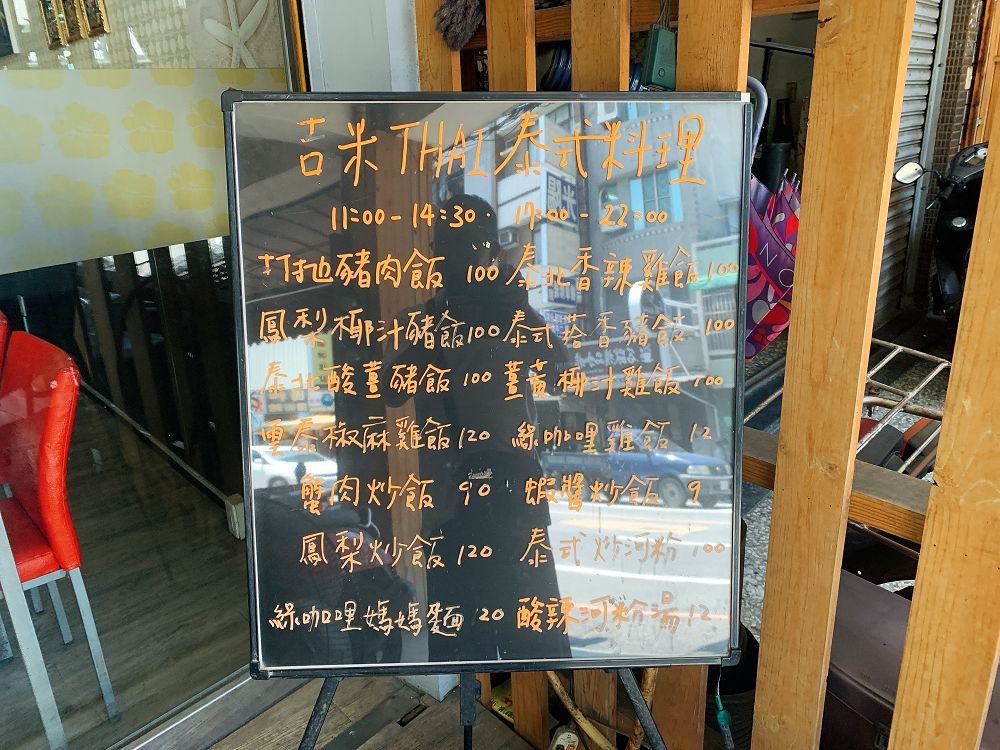 吉米THAI泰式料理
11:00-14:30. 17:00-22:00
打拋豬肉飯 100 泰北香辣雞飯100
鳳梨椰汁豬飯100 泰式塔香豬飯 100
泰北酸薑豬飯 100 薑黃椰汁雞飯 100
雲泰椒麻雞飯120 綠咖哩雞飯 12
蟹肉炒飯 90 蝦醬炒飯 9
鳳梨炒飯 120 泰式炒河粉 100
綠咖哩媽媽麵 120 酸辣河粉湯12